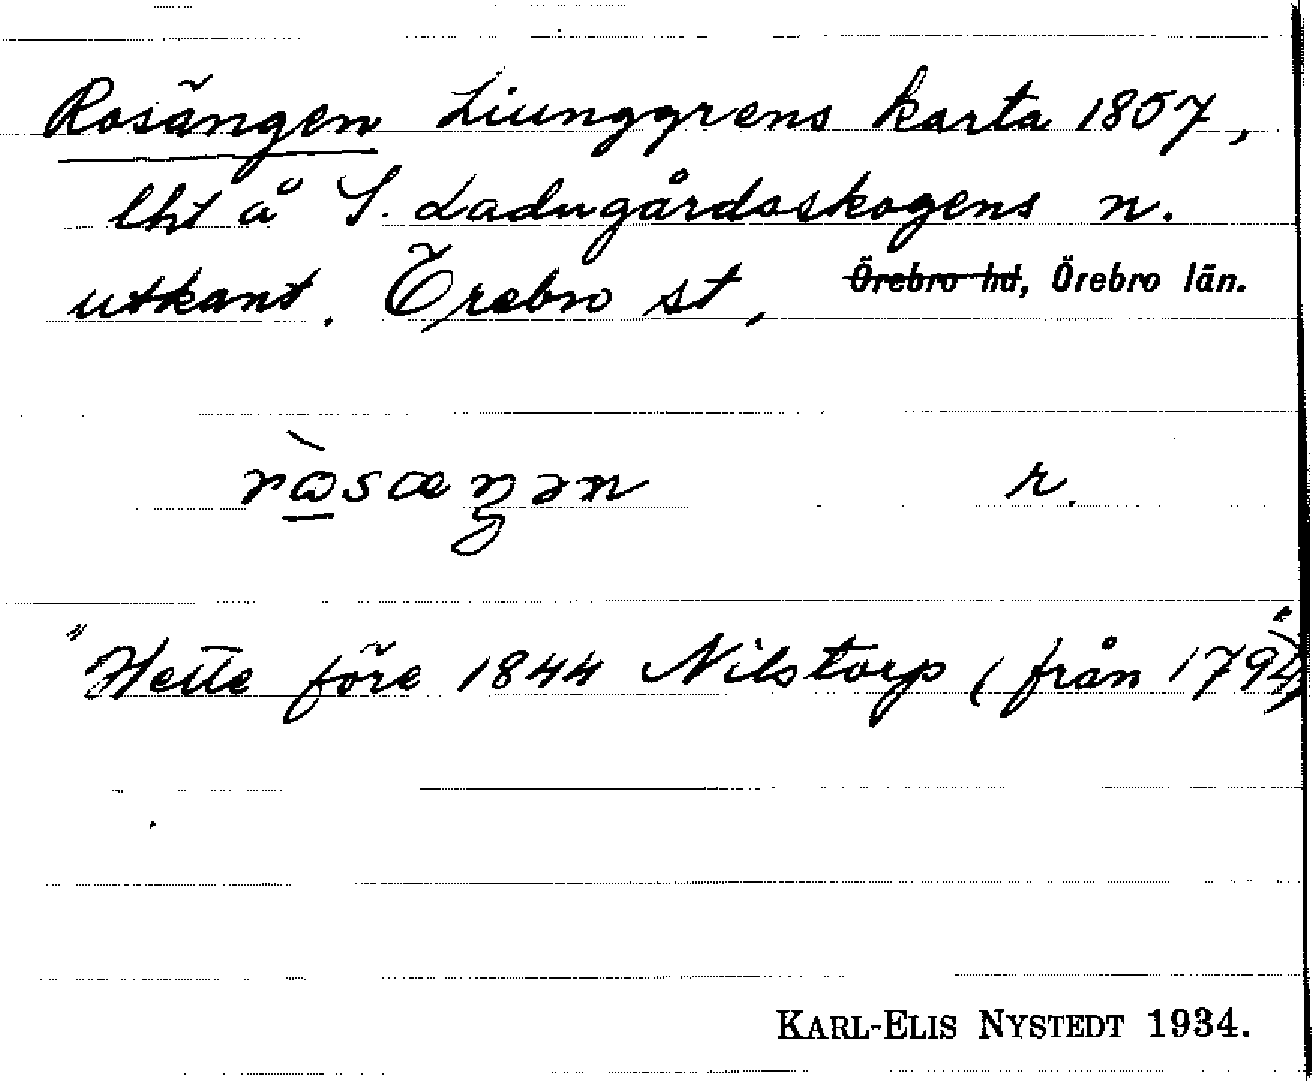 Rosängen Liunggrens karta 1857,
lht å S. Ladugårdsskogens n.
utkant. Örebro st, Örebro hd, Örebro län.
r.
"Hette före 1844 Nilstorp (från 1794)"
KARL-ELIS NYSTEDT 1934.